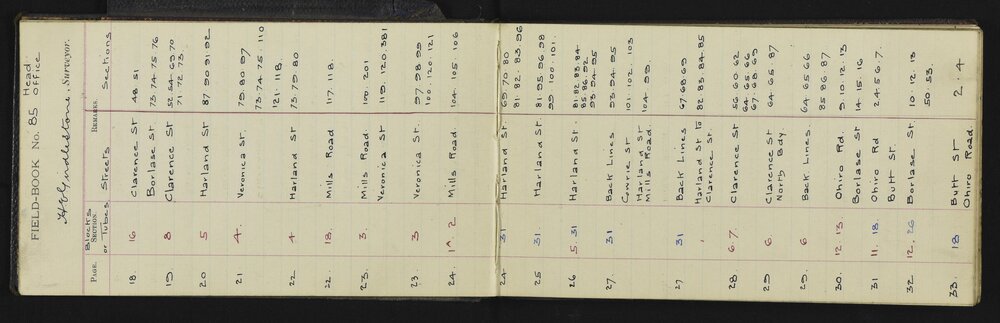 FIELD-BOOK No. 85 Head Office
H E Girdlestone, Surveyor.
PAGE. Blocks SECTION. or Tubes Streets REMARKS. Sections
18 16 Clarence St 48. 51
19 8 Borlase St 73. 74. 75. 76
Clarence St 52. 54. 69. 70
71. 72. 73.
20 5 Harland St 87. 90. 91. 92
21 4. Veronica St. 79. 80. 97
73. 74. 75. 110
121. 118.
22 4 Harland St 73. 79. 80
22. 18. Mills Road 117. 118.
23. 3. Mills Road 100. 201
Veronica St 119. 120. 381
23 3 Veronica St. 97. 98. 99
100. 120. 121
24. 2 Mills Road. 104. 105. 106
24 31 Harland St. 69. 70. 80
81. 82. 83. 96
25 31. Harland St. 81. 95. 96. 98
99. 100. 101.
26 5. 31 Harland St. 81. 82. 83. 84
85. 86. 92
93. 94. 95
27. 31 Back Lines 93. 94. 95
Cowrie St 101. 102. 103
Harland St
Mills Road. 104. 99.
27 31 Back Lines 67. 68. 69
Harland St to 82. 83. 84. 85
Clarence St.
28 6. 7. Clarence St 56. 60. 62
64. 65. 66
67. 68. 69
29 6. Clarence St 64. 65. 87
North Bdy
29. 6 Back Lines. 64. 65. 66
85. 86. 87
30. 12. 13 Ohiro Rd. 9. 10. 12. 13
Borlase St 14. 15. 16
31 11. 18. Ohiro Rd 2. 4. 5. 6. 7.
Butt St.
32 12. 26 Borlase St. 10. 12. 13
50. 53.
33. 18 Butt St 2. 4
Ohiro Road.